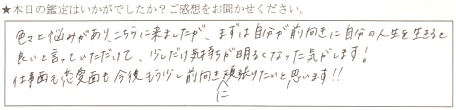 ★本日の鑑定はいかがでしたか？ご感想をお聞かせください。
色々と悩みがあり、こちらに来ましたが、まずは自分が前向きに自分の人生を生きると
良いと言っていただけて、少しだけ気持が明るくなった気がします！
仕事面も恋愛面も今後もう少し前向きに頑張りたいと思います!!